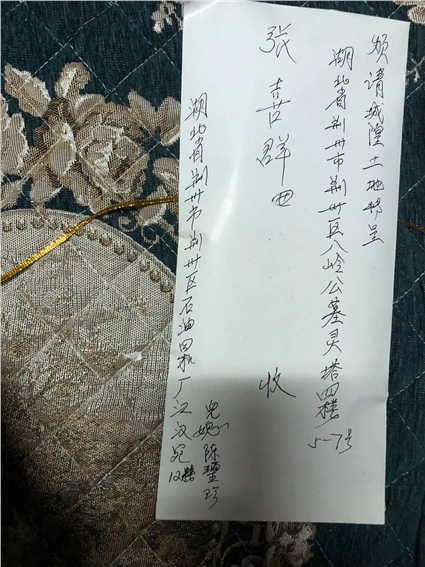 烦请城隍土地转呈
湖北省荆州市荆州区八岭公墓灵塔四楼
5-7号
张喜群 收
湖北省荆州市荆州区石油四机厂江汉苑
12楼
儿媳陈珍